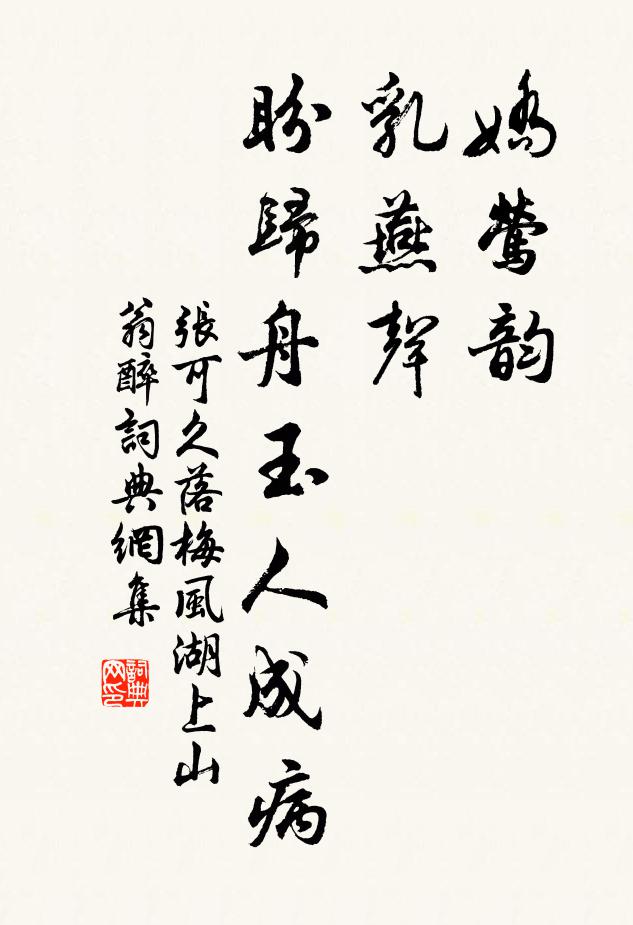 嬌鶯韵
乳燕聲
盼歸舟玉人成病
張可久落梅風湖上山
翁醉詞典網集
詞典网印